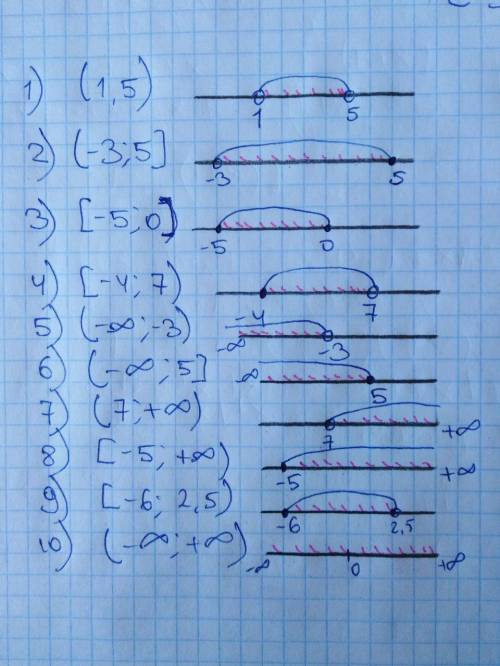 1) (1,5) 1 5
2) (-3;5] -3 5
3) [-5;0] -5 0
4) [-4;7) -4 7
5) (-∞;-3) -∞ -3
6) (-∞;5] -∞ 5
7) (7;+∞) 7 +∞
8) [-5;+∞) -5 +∞
9) [-6; 2,5) -6 2,5
10) (-∞;+∞) -∞ 0 +∞